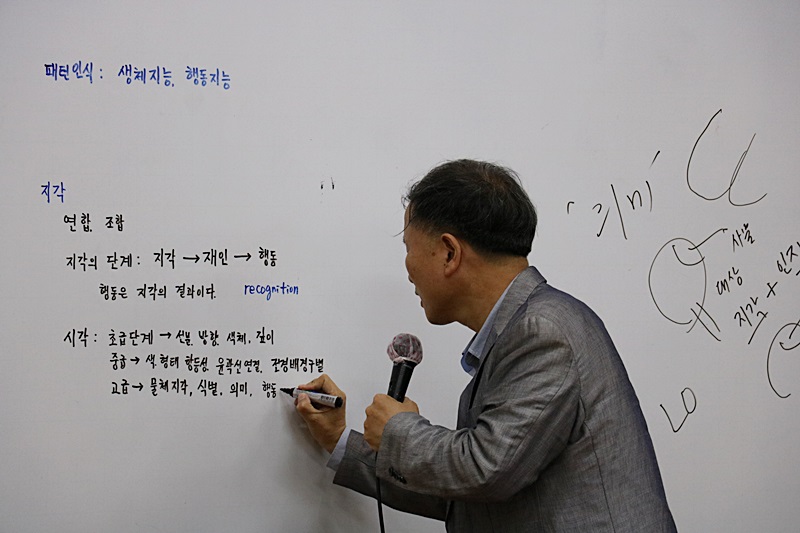 패턴인식: 생체지능, 행동지능
지각
연합, 조합
지각의 단계: 지각 → 재인 → 행동
행동은 지각의 결과이다. recognition
시각: 초급단계 → 선분, 방향, 색체, 깊이
중급 → 색, 형태 항등성, 윤곽선연결, 전경배경구별
고급 → 물체지각, 식별, 의미, 행동
사물
대상
지각 +